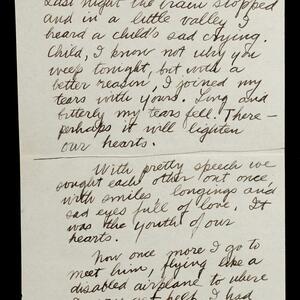 Last night the train stopped
and in a little valley I
heard a child's sad crying.
Child, I know not why you
weep tonight, but with a
better reason, I joined my
tears with yours. Long and
bitterly my tears fell. There —
perhaps it will lighten
our hearts.
With pretty speech we
sought each other out once,
with smiles, longings and
sad eyes full of love. It
was the youth of our
hearts.
Now once more I go to
meet him, flying like a
disabled airplane to where
help I had